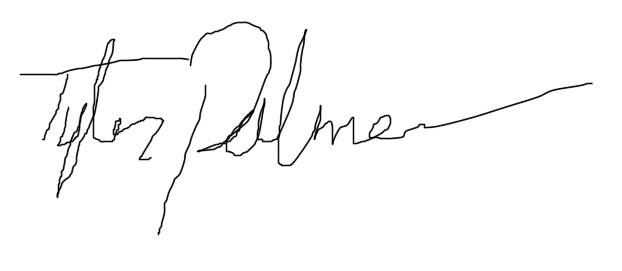 Tyler Palmer